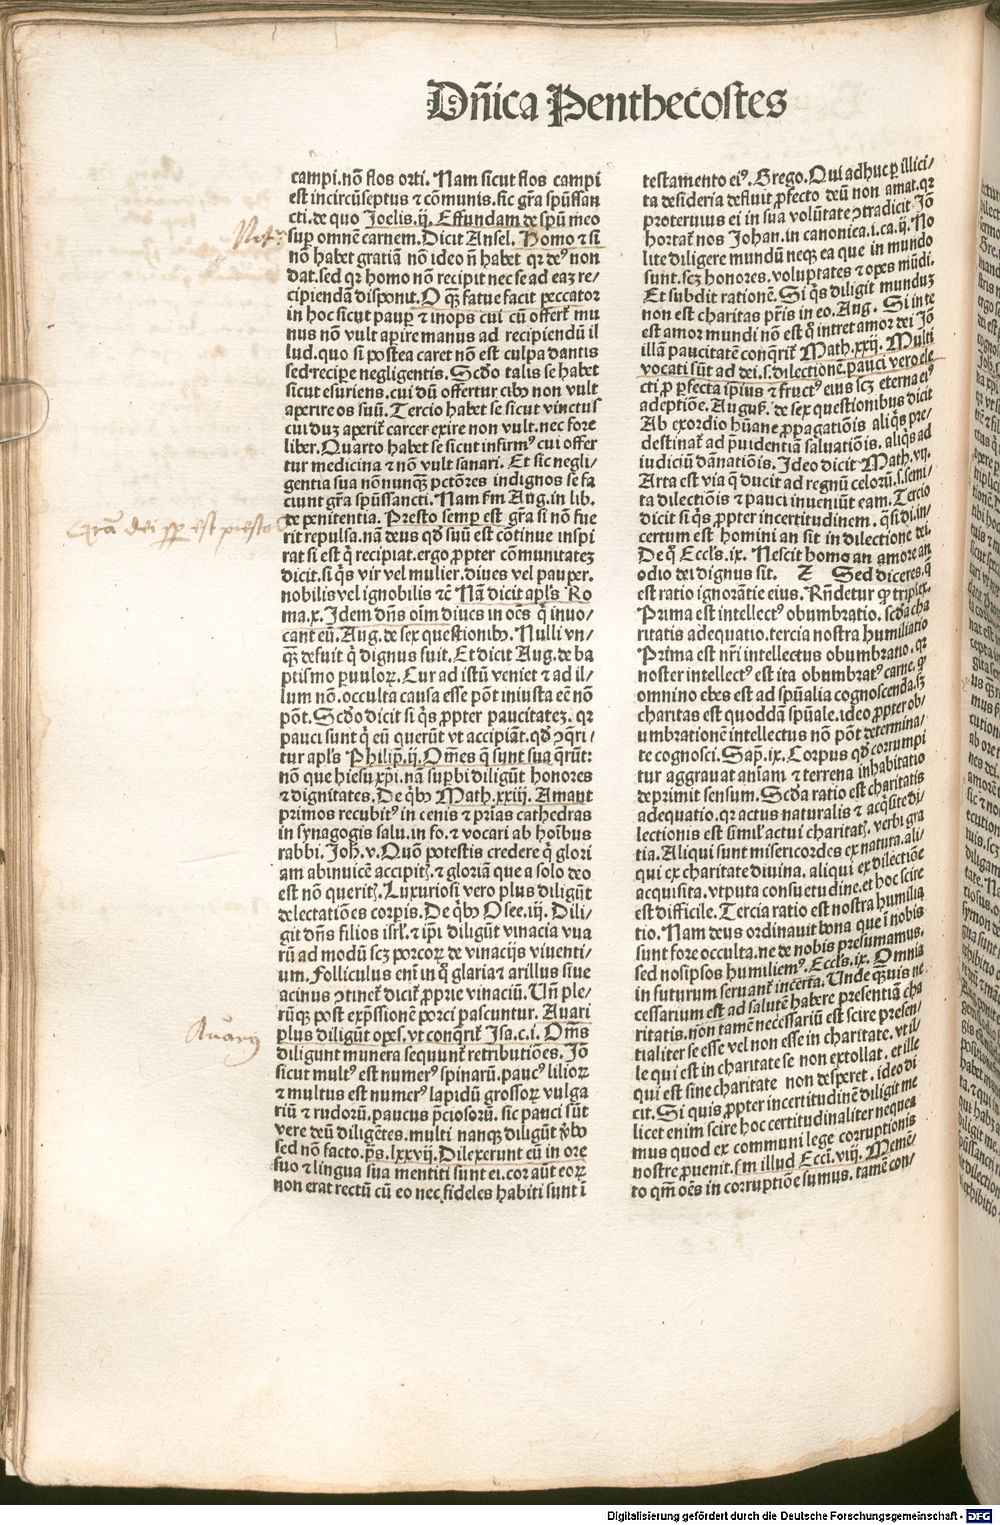 Dn̄ica Penthecostes
campi.nō flos orti. Nam sicut flos campi
est incircūseptus ⁊ cōmunis.sic gr̄a spūssan
cti.de quo Joelis.ij. Effundam de spū meo
Not
sup omnē carnem. Dicit Ansel. Homo ⁊ si
nō habet gratiā nō ideo n̄ habet qꝛ deꝰ non
dat.sed qꝛ homo nō recipit nec se ad eaꝫ re/
cipiendā disponit. O qꝫ fatue facit peccator
in hoc sicut pauꝑ ⁊ inops cui cū offert᷑ mu
nus nō vult apire manus ad recipiendū il
lud.quo si postea caret nō est culpa dantis
sed recipere negligentis. Scd̄o talis se habet
sicut esuriens.cui dū offertur cibꝰ non vult
aperire os suū. Tercio habet se sicut vinctus
cui dum aperit᷑ carcer exire non vult.nec fore
liber. Quarto habet se sicut infirmꝰ cui offer
tur medicina ⁊ nō vult sanari. Et sic negli/
gentia sua nōnunqꝫ pctōres indignos se fa
ciunt gr̄a spūssancti. Nam fm Aug.in lib.
Grām dei sꝑ est presto
de penitentia. Presto semꝑ est gr̄a si nō fue
rit repulsa.nā deus qd̄ suū est cōtinue inspi
rat si est q̄ recipiat.ergo ꝓpter cōmunitatez
dicit.si q̄s vir vel mulier.diues vel pauper.
nobilis vel ignobilis ⁊c̄ Nā dicit apl̄s Ro
ma.x. Idem dn̄s oīm diues in oēs q̄ inuo/
cant eū. Aug.de sex questionibꝰ. Nulli vn/
qꝫ defuit q̄ dignus fuit. Et dicit Aug.de ba
ptismo paruuloꝝ. Cur ad istū veniet ⁊ ad il/
lum nō.occulta causa esse pōt iniusta eē nō
pōt. Scd̄o dicit si q̄s ꝓpter paucitatez. qꝛ
pauci sunt q̄ eū querūt vt accipiāt.qd̄ ꝯq̄ri/
tur apl̄s Philip̄.ij. Om̄es q̄ sunt sua q̄rūt:
nō que hiesu xp̄i.nā suꝑbi diligūt honores
⁊ dignitates. De q̄bꝰ Math.xxiij. Amant
primos recubitꝰ in cenis ⁊ prīas cathedras
in synagogis salu.in fo.⁊ vocari ab hoībus
rabbi. Joh.v. Quō potestis credere q̄ glori
am abinuicē accipit᷑.⁊ gloriā que a solo deo
est nō querit᷑. Luxuriosi vero plus diligūt
delectatiōes corꝑis. De q̄bꝰ Osee.iij. Dili/
git dn̄s filios isrl̄.⁊ ip̄i diligūt vinacia vua
rū ad modū scꝫ porcoꝝ de vinacijs viventi/
um. Folliculus eni in q̄ gloria ⁊ arillus siue
acinus ꝯtinet᷑ dicit᷑ ꝓprie vinaciū. Un̄ ple/
rūqꝫ post exp̄ssionē porci pascuntur. Auari
Auarus
plus diligūt opes.vt conq̄rit᷑ Isa.c.i. Om̄s
diligunt munera sequunt᷑ retributiōes. Jō
sicut multꝰ est numerꝰ spinarū.paucꝰ lilioꝝ
⁊ multus est numerꝰ lapidū grossoꝝ vulga
riū ⁊ rudorū.paucus p̄ciosorū.sic pauci sūt
vere deū diligētes.multi nanqꝫ diligūt v̄bo
sed nō facto.p̄s.lxxvij. Dilexerunt eū in ore
suo ⁊ lingua sua mentiti sunt ei.cor aūt eoꝝ
non erat rectū cū eo nec fideles habiti sunt ī
testamento eiꝰ. Grego. Qui adhuc ꝑ illici/
ta desideria defluit ꝓfecto deū non amat.qꝛ
proteruius ei in sua volūtate ꝯtradicit Jō
hortat᷑ nos Johan.in canonica.i.ca.ij. No
lite diligere mundū neqꝫ ea que in mundo
sunt.scꝫ honores.voluptates ⁊ opes mūdi.
Et subdit rationē. Si q̄s diligit munduꝫ
non est charitas pr̄is in eo. Aug. Si in te
est amor mundi nōn est q̄ intret amor dei Jō
illā paucitatē conq̄rit᷑ Math.xxij. Multi
vocati sūt ad dei.s.dilectionē.pauci vero ele
cti ꝓ ꝑfecta ip̄ius ⁊ fructꝰ eius scꝫ eterna eiꝰ
adeptiōe. August᷑.de sex questionibus dicit
Ab exordio hūane ꝓpagationis aliq̄s pre/
destinat᷑ ad p̄uidentiā saluatiōis.aliq̄s ad
iudiciū dānatiōis. Ideo dicit Math.vij.
Arta est via q̄ ducit ad regnū celorū.s.semi/
ta dilectiōis ⁊ pauci inueniūt eam. Tercio
dicit si q̄s ꝓpter incertitudinem.q̄si di.in/
certum est homini an sit in dilectione dei.
De q̄ Eccl̄s.ix. Nescit homo an amore an
odio dei dignus sit. Z Sed diceres.q̄
est ratio ignorātie eius. Rn̄detur qꝫ triplex.
Prima est intellectꝰ obumbratio.scd̄a cha
ritatis adequatio.tercia nostra humiliatio
Prima est nr̄i intellectus obumbratio.qꝛ
noster intellectꝰ est ita obumbratꝰ carne.qꝫ
omnino ebes est ad spūalia cognoscenda.sꝫ
charitas est quoddā spūale.ideo ꝓpter ob/
umbrationē intellectus nō pōt determina/
te cognosci. Sap̄.ix. Corpus qd̄ corrumpi
tur aggrauat aniam ⁊ terrena inhabitatio
deprimit sensum. Scd̄a ratio est charitatis
adequatio.qꝛ actus naturalis ⁊ acq̄site di/
lectionis est simil᷑ actui charitat᷑. verbi gra
tia. Aliqui sunt misericordes ex natura.ali/
qui ex charitate diuina.aliqui ex dilectiōe
acquisita.vtputa consuetudine.et hoc scire
est difficile. Tercia ratio est nostra humilia
tio. Nam deus ordinauit bona que ī nobis
sunt fore occulta.ne de nobis presumamus.
sed nosipsos humiliemꝰ. Eccl̄s.ix. Omnia
in futurum seruant᷑ incerta. Unde qꝫuis ne
cessarium est ad salutē habere presentiā cha
ritatis.non tamē necessariū est scire presen/
tialiter se esse vel non esse in charitate. vt il/
le qui est in charitate se non extollat.et ille
qui est sine charitate non desperet.ideo di
cit. Si quis ꝓpter incertitudinē diligit me
licet enim scire hoc certitudinaliter nequea
mus quod ex communi lege corruptionis
nostre ꝓuenit.fm illud Eccī.viij. Memē/
to qm̄ oēs in corruptiōe sumus.tamē con/
Digitalisierung gefördert durch die Deutsche Forschungsgemeinschaft - DFG